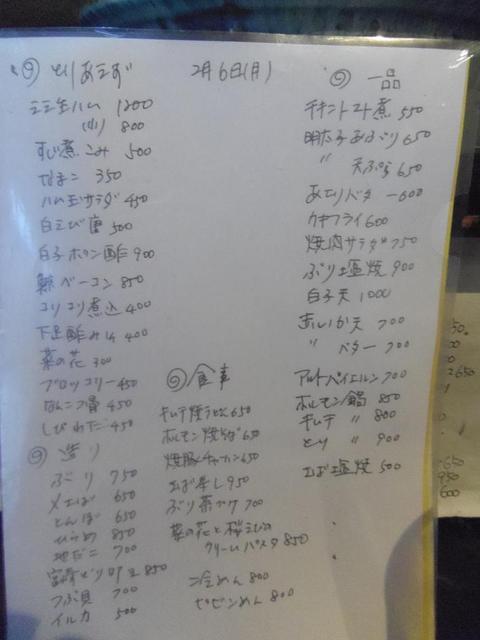 とりあえず
2月6日(月)
ミミ生ハム 1200
〃 ハーフ 800
すじ煮こみ 500
なまこ 350
ハム玉サラダ 450
白えび唐 500
白子ポン酢 900
鯨ベーコン 850
コリコリ煮込 400
下足酢みそ 400
菜の花 300
ブロッコリー 450
なんこつ唐 450
しびれだこ 450
造り
ぶり 750
〆さば 650
とんぼ 650
ひらめ 850
地だこ 700
宮崎とり 850
つぶ貝 700
イルカ 500
食事
キムチ焼うどん 650
ホルモン焼そば 650
焼豚チャーハン 650
さば寿し 950
ぶり茶づけ 700
菜の花と桜えびの
クリームパスタ 850
冷めん 800
ビビンめん 800
一品
チキントマト煮 550
明太子あぶり 650
〃 天ぷら 650
あさりバター 600
カキフライ 600
焼肉サラダ 750
ぶり塩焼 900
白子天 1000
あおいか天 700
〃 バター 700
アルトバイエルン 700
ホルモン鍋 850
キムチ 〃 800
とり 〃 900
さば塩焼 500
650
950
600